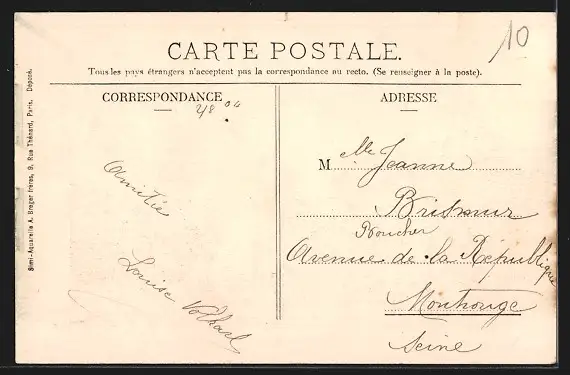 10
CARTE POSTALE.
Tous les pays étrangers n'acceptent pas la correspondance au recto. (Se renseigner à la poste).
CORRESPONDANCE
ADRESSE
Amitié
Louise
M elle Jeanne
Brismur
Boucher
Avenue de la République
Montrouge
Seine
Simi-Aquarelle A. Breger frères, 9, Rue Thénard, Paris. Déposé.